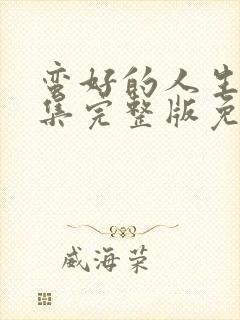 蛮好的人生
集完整版免
威海荣